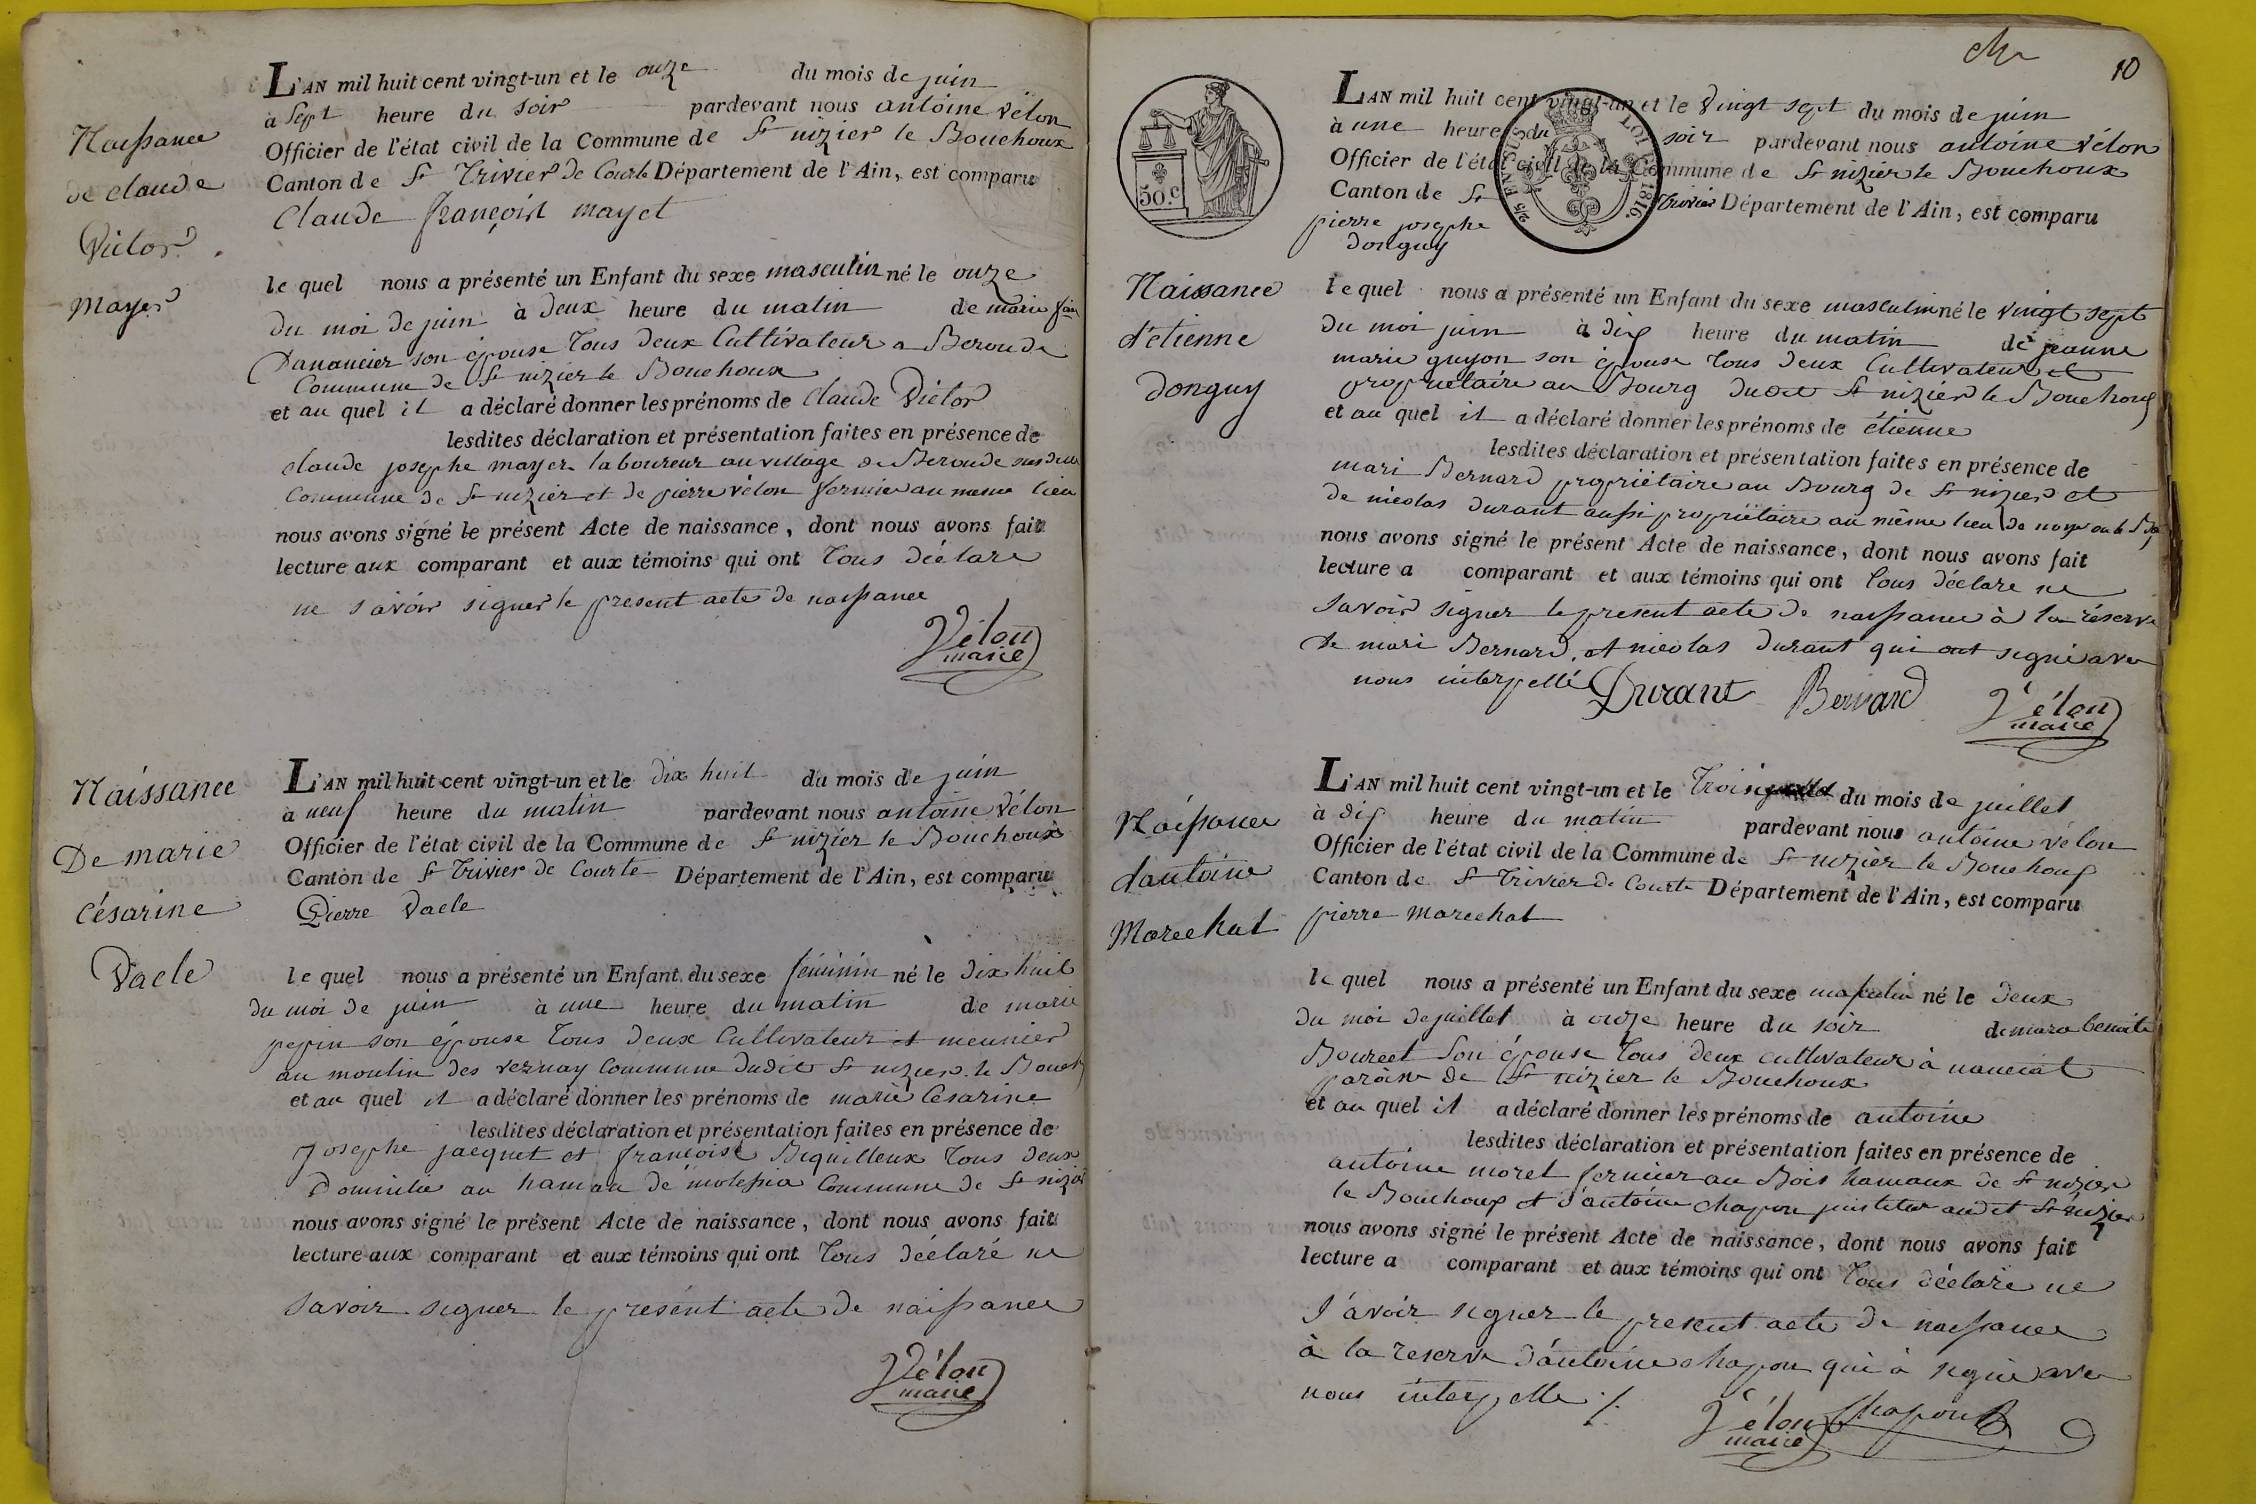 Naissance
de claude
Victor
mayer
L'AN mil huit cent vingt-un et le onze du mois de juin
à sept heure du soir pardevant nous antoine vélon
Officier de l'état civil de la Commune de St nizier le Bouchoux
Canton de St Trivier de Courte Département de l'Ain, est comparu
Claude françois mayet
le quel nous a présenté un Enfant du sexe masculin né le onze
du moi de juin à deux heure du matin de marie
Dananeier son épouse tous deux Cultivateur a Beroude
Commune de St nizier le Bouchoux
et au quel il a déclaré donner les prénoms de Claude Victor
lesdites déclaration et présentation faites en présence de
claude josephe mayer laboureur au village de Beroude
Commune de St nizier et de pierre vélon fermier au meme lieu
nous avons signé le présent Acte de naissance, dont nous avons fait
lecture aux comparant et aux témoins qui ont tous déclare
ne savoir signer le present acte de naissance
Vélon
maire
Naissance
De marie
césarine
Vacle
L'AN mil huit cent vingt-un et le dix huit du mois de juin
à neuf heure du matin pardevant nous antoine vélon
Officier de l'état civil de la Commune de St nizier le Bouchoux
Canton de St Trivier de Courte Département de l'Ain, est comparu
Pierre Vacle
le quel nous a présenté un Enfant du sexe féminin né le dix huit
du moi de juin à une heure du matin de marie
pepin son épouse tous deux Cultivateur et meunier
au moulin des vernay Commune dudit St nizier le Bouch
et au quel il a déclaré donner les prénoms de marie Césarine
lesdites déclaration et présentation faites en présence de
Josephe jacquet et françoise Bequilleux tous deux
Domicilie au hamau de molessia Commune de St nizier
nous avons signé le présent Acte de naissance, dont nous avons fait
lecture aux comparant et aux témoins qui ont tous déclaré ne
savoir signer le présent acte de naissance
Vélon
maire
10
50.c
EN SUS LOI 1816
L'AN mil huit cent vingt-un et le vingt sept du mois de juin
à une heure du soir pardevant nous antoine vélon
Officier de l'état civil de la Commune de St nizier le Bouchoux
Canton de St Trivier Département de l'Ain, est comparu
pierre josephe
donguy
Naissance
d'étienne
donguy
le quel nous a présenté un Enfant du sexe masculin né le vingt sept
du moi juin à dix heure du matin de jeanne
marie guyon son épouse tous deux Cultivateur et
propriétaire au Bourg dudit St nizier le Bouchoux
et au quel il a déclaré donner les prénoms de étienne
lesdites déclaration et présentation faites en présence de
mari Bernard propriétaire au Bourg de St nizier et
de nicolas durant aussi propriétaire au même lieu
nous avons signé le présent Acte de naissance, dont nous avons fait
lecture a comparant et aux témoins qui ont tous déclare ne
savoir signer le present acte de naissance à la réserve
de mari Bernard et nicolas durant qui ont signé avec
nous interpellé
Durant Bernard Vélon
maire
Naissance
d'antoine
Marechal
L'AN mil huit cent vingt-un et le Trois du mois de juillet
à dix heure du matin pardevant nous antoine vélon
Officier de l'état civil de la Commune de St nizier le Bouchoux
Canton de St Trivier de Courte Département de l'Ain, est comparu
pierre marechal
le quel nous a présenté un Enfant du sexe masculin né le deux
du moi de juillet à onze heure du soir de
Bourcet son épouse tous deux cultivateur à nanciat
paroisse de St nizier le Bouchoux
et au quel il a déclaré donner les prénoms de antoine
lesdites déclaration et présentation faites en présence de
antoine moret fermier au Bois hamaux de St nizier
le Bouchoux et d'antoine chapon audit St nizier
nous avons signé le présent Acte de naissance, dont nous avons fait
lecture a comparant et aux témoins qui ont tous déclaré ne
savoir signer le present acte de naissance
à la reserve d'antoine chapon qui à signé avec
nous interpelle ./.
Vélon Chapon
maire